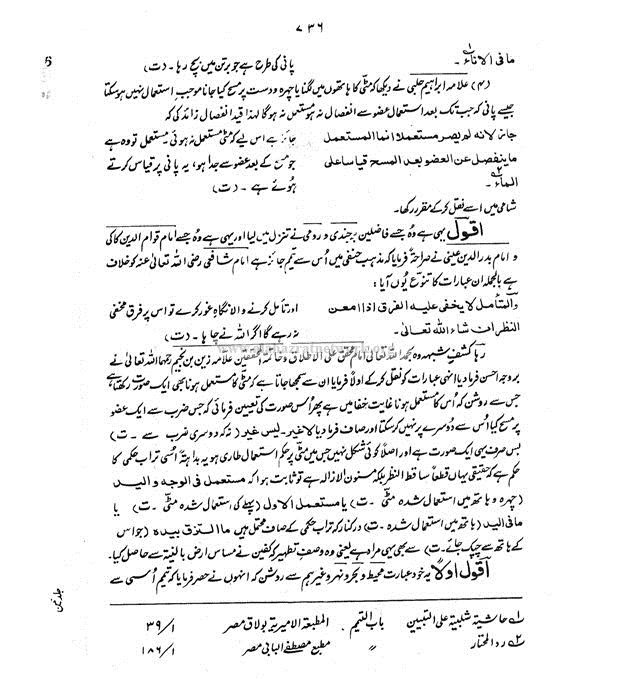 ۷۳۶
مافی الاناء؎۱ پانی کی طرح ہے جو برتن میں بچ رہا ۔ (ت)
(۴) علامہ ابراہیم حلبی نے دیکھا کہ مٹی کا ہاتھوں میں لگنا یا چہرہ و دست پر مسح کیا جانا موجب استعمال نہیں ہوسکتا
جیسے پانی کہ جب تک بعد استعمال عضو سے انفصال نہ ہو مستعمل نہ ہوگا لہذا قید انفصال زائد کی کہ
جاز لانہ لم یصر مستعملا انما المستعمل جائز ہے اس لیے کہ مٹی مستعمل نہ ہوئی مستعمل تو وہ ہے
ماینفصل عن العضو بعد المسح قیاسا علی جو مسح کے بعد عضو سے جدا ہو، یہ پانی پر قیاس کرتے
الماء؎۲ ۔ ہُوئے ہے ۔ (ت)
شامی میں اسے نقل کرکے مقرر رکھا۔
اقول یہی ہے وُہ جسے فاضلین برجندی و رومی نے تنزل میں لیا اور یہی ہے وُہ جسے امام قوام الدین کاکی
و امام بدرالدین عینی نے صراحۃً فرمایا کہ مذہب حنفی میں اُس سے تیمم جائز ہے امام شافعی رضی اللہ تعالٰی عنہ کو خلاف
ہے بالجملہ ان عبارات کا تنوع یُوں آیا:
والمتأمل لایخفی علیہ الفرق اذا امعن اور تأمل کرنے والا نگاہِ غور کرے تو اس پر فرق مخفی
النظر ان شاء اللہ تعالٰی۔ نہ رہے گا اگر اللہ نے چاہا ۔ (ت)
رہا کشفِ شبہہ وہ بحمد اللہ تعالٰی امام محقق علی الاطلاق و خاتمۃ المحققین علامہ زین بن نجیم رحمہما اللہ تعالٰی نے
بروجہ احسن فرمادیا انہی عبارات کو نقل کرکے اولاً فرمایا ان سے سمجھا جاتا ہے کہ مٹی کا مستعمل ہونا بھی ایک صورت رکھتا ہے
جس سے روشن کہ اُس کا مستعمل ہونا غایت خفا میں ہے پھر اُس صورت کی تعیین فرمائی کہ جس ضرب سے ایک عضو
پر مسح کیا اُس سے دُوسرے پر نہیں کرسکتا اور صاف فرمادیا لاغیر۔ لیس غیر (نہ کہ دوسری ضرب سے ۔ ت)
بس صرف یہی ایک صورت ہے اور اصلاً کوئی شکل نہیں جس میں مٹی پر حکم استعمال طاری ہو یہ بداہۃً اُسی تراب حکمی کا
حکم ہے کہ حقیقی یہاں قطعاً ساقط النظر بلکہ مسنون الازالہ ہے تو ثابت ہوا کہ مستعمل فی الوجہ والید
(چہرہ و ہاتھ میں استعمال شدہ مٹی ۔ ت) یا مستعمل الاول (پہلے کی استعمال شدہ مٹی ۔ ت) یا
مافی الید (ہاتھ میں استعمال شدہ ۔ ت) درکنار کہ تراب حکمی کے صاف محتمل ہیں ماالتزق بیدہ (جو اس
کے ہاتھ سے چپک جائے۔ ت) سے بھی یہی مراد ہے یعنی وہ وصف تطہیر کہ کفین نے مساس ارض بالنیۃ سے حاصل کیا۔
اقول اولاً یہ خود عبارت محیط و بحر و نہر وغیرہم سے روشن کہ انہوں نے حصر فرمایا کہ تیمم اُسی سے
؎۱ حاشیۃ شلبیۃ علی التبیین باب التیمم المطبعۃ الامیریۃ بولاق مصر ۱/۳۹
؎۲ ردالمحتار " مطبع مصطفےٰ البابی مصر ۱/۱۸۶